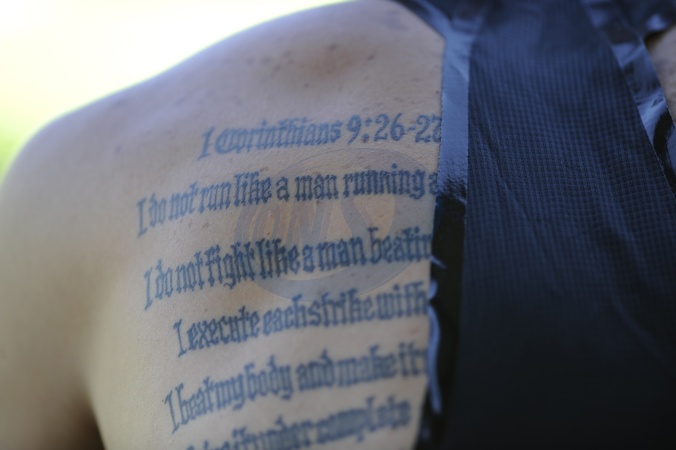 1 Corinthians 9:26-27
I do not run like a man running a
I do not fight like a man beatin
I execute each strike with
I beat my body and make it
under complete